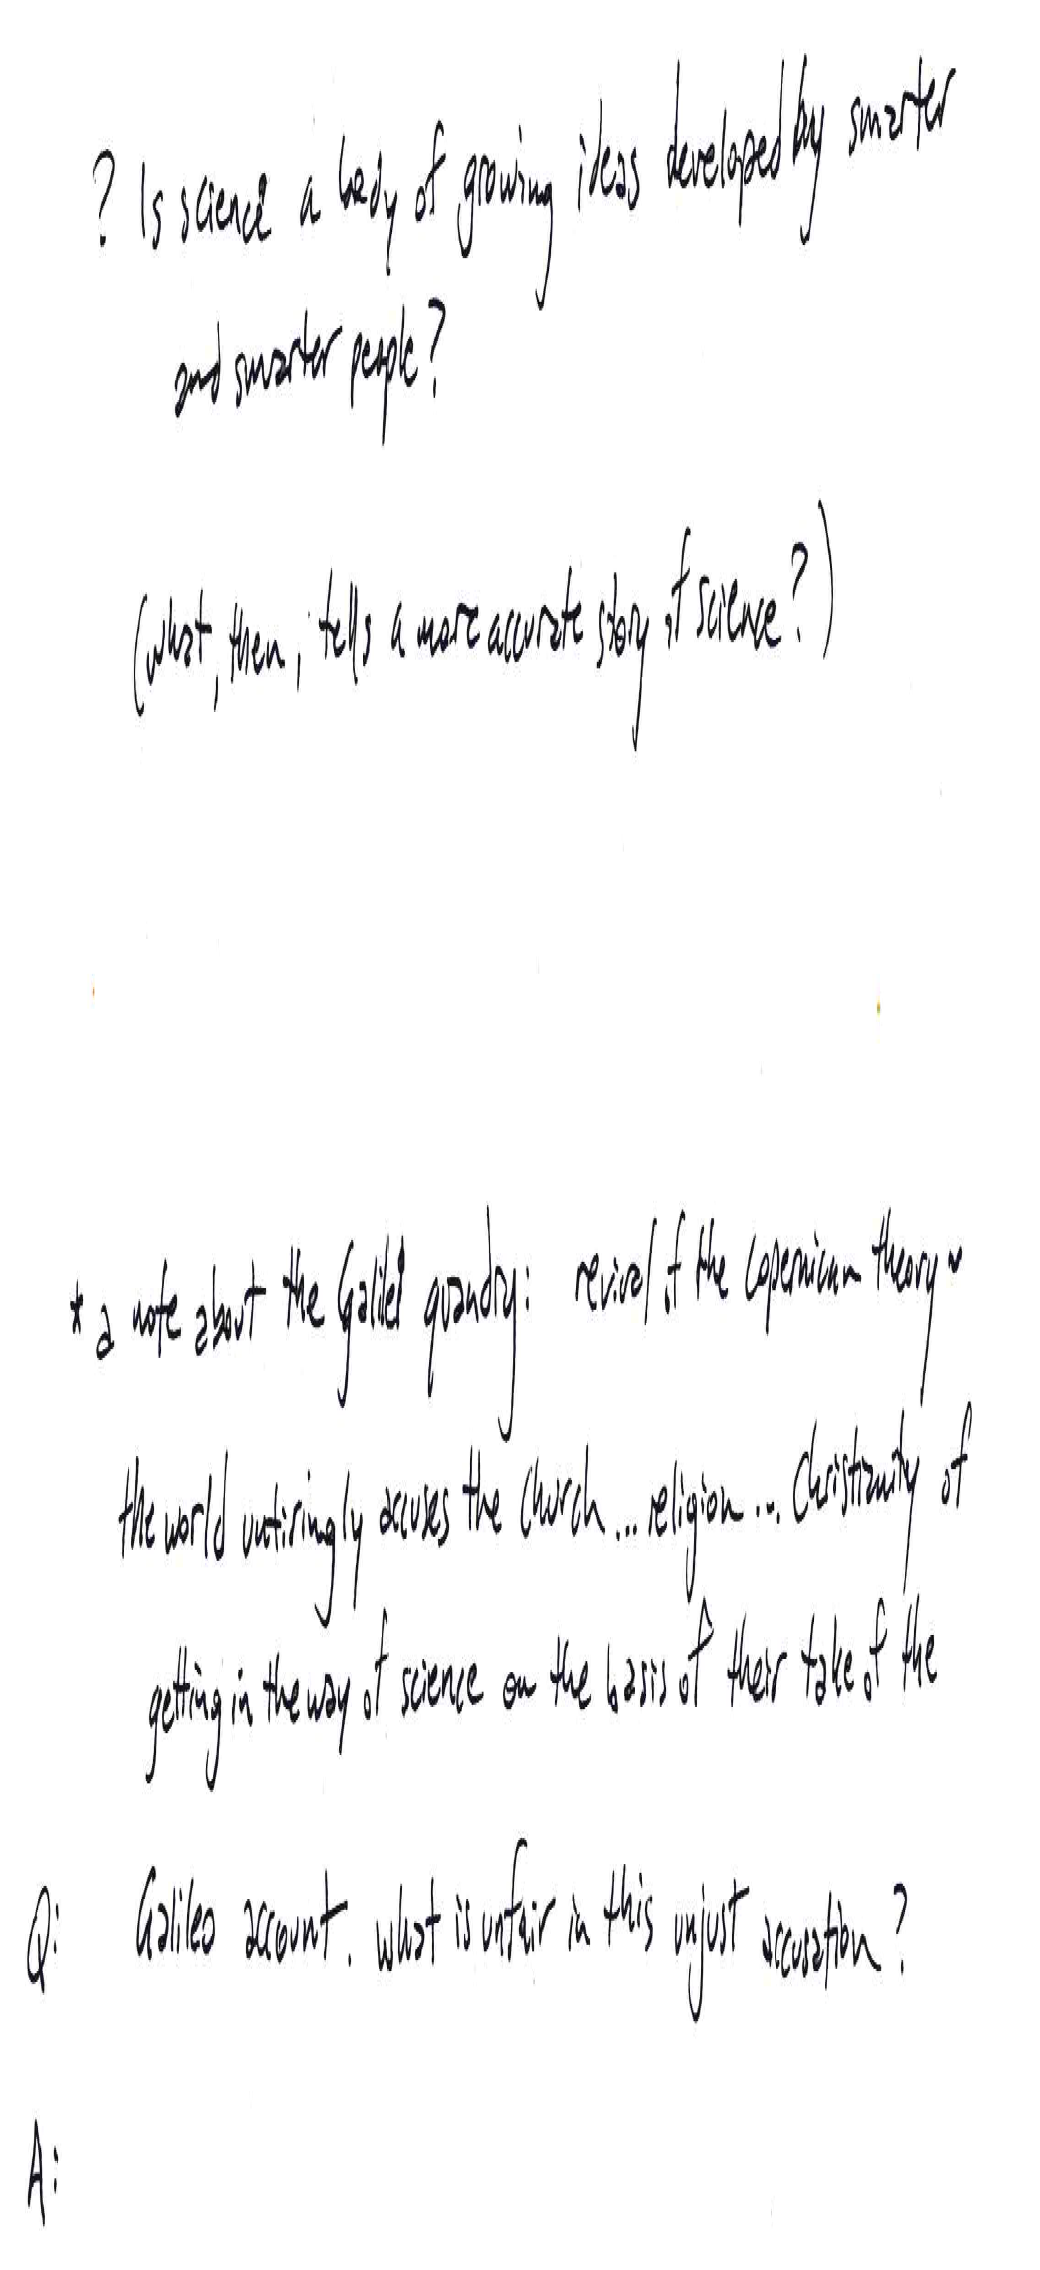 ? Is science a body of growing ideas developed by smarter
and smarter people?
(what, then, tells a more accurate story of science?)
* a note about the Galilei quandry: revival of the Copernican theory ~
the world untiringly accuses the Church... religion... Christianity of
getting in the way of science on the basis of their take of the
Q: Galileo account. What is unfair in this unjust accusation?
A: